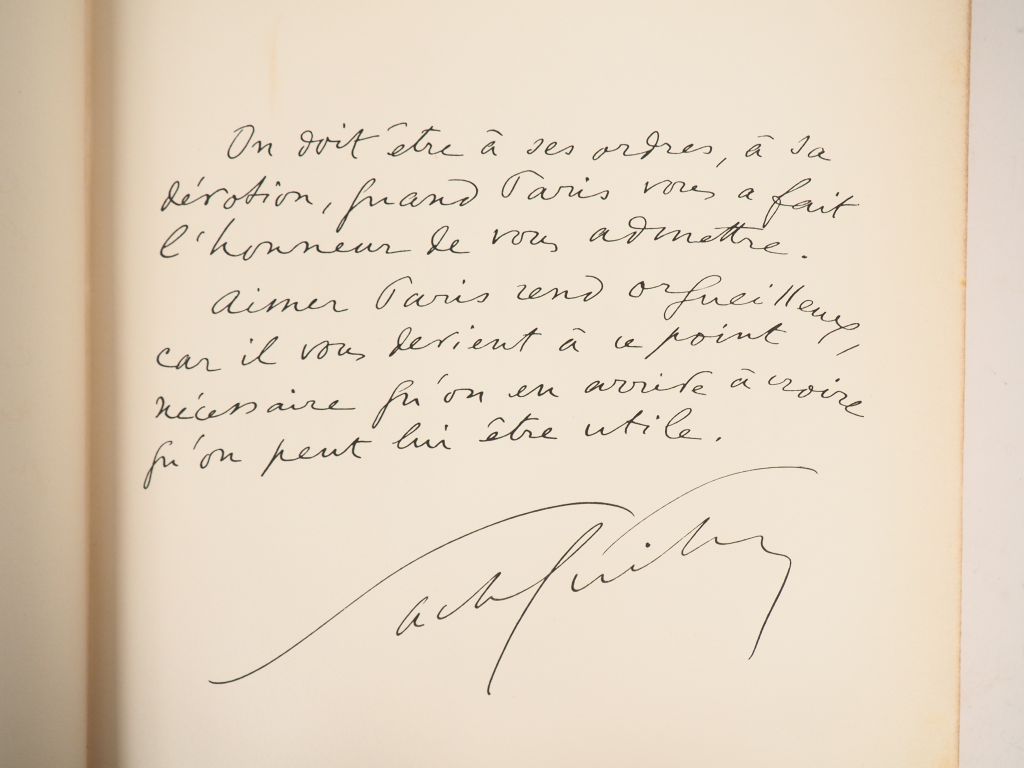 On doit être à ses ordres, à sa
dévotion, quand Paris vous a fait
l'honneur de vous admettre.
Aimer Paris rend orgueilleux,
car il vous devient à ce point
nécessaire qu'on en arrive à croire
qu'on peut lui être utile.
Sacha Guitry